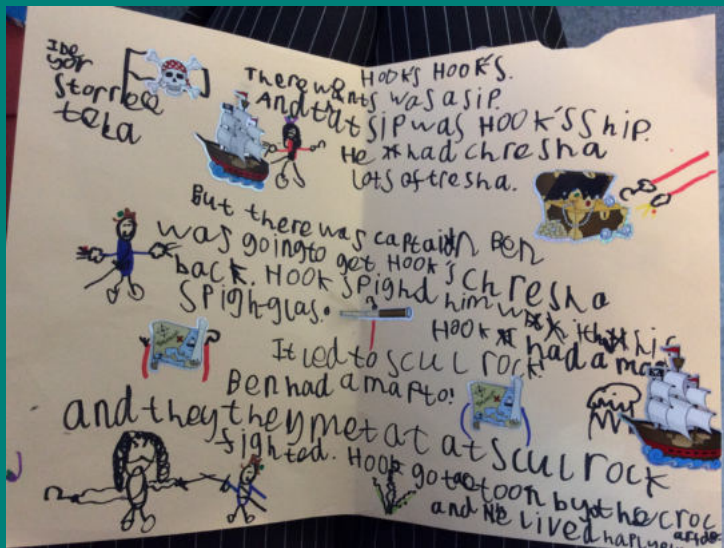 Ide
yor
Storree
tela
HOOK'S HOOK'S.
There wants was a sip.
And that sip was HOOK'S Ship.
He had chresha
lots of tresha.
But there was captain BEN
was going to get HOOK'S chresha
back. HOOK spighd him with his
spigh-glas.
HOOK had a map
It led to scul rock.
Ben had a map to!
and they they met at at scul rock
fighted. Hook got by the croc
and he lived haply